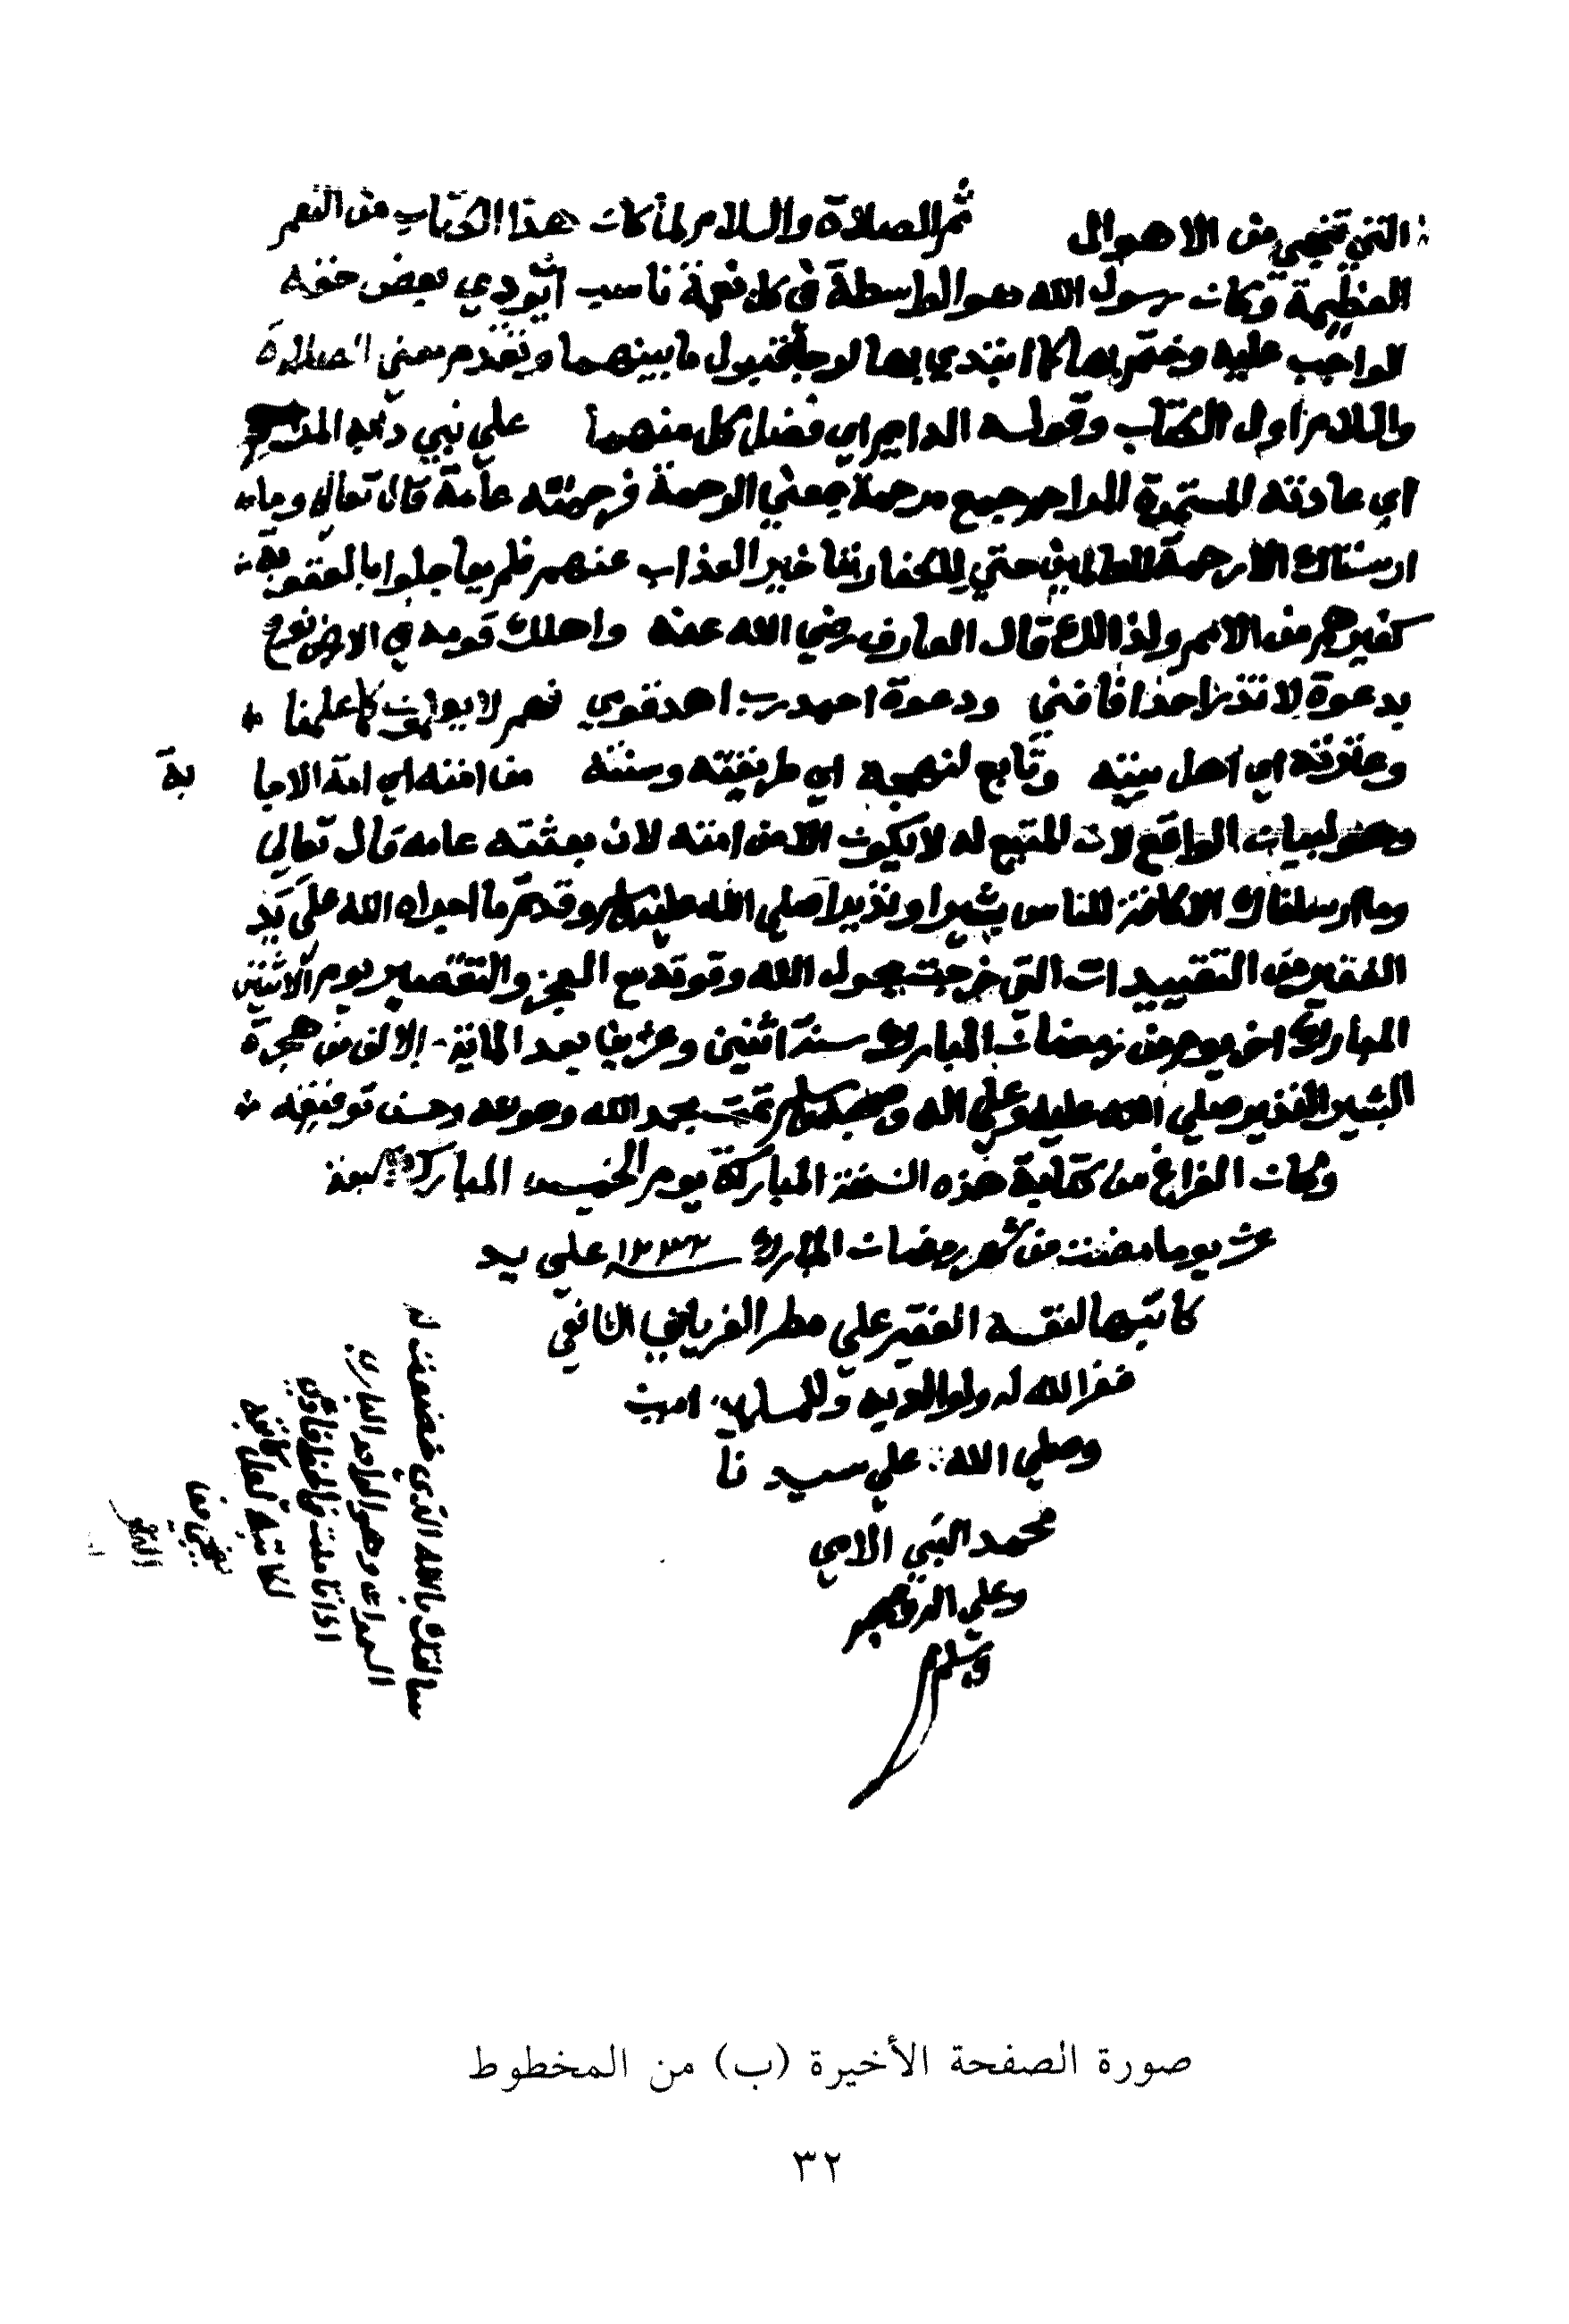 التي تنجي من الاهوال ثم الصلاة والسلام لما كان هذا الكتاب من النعم
العظيمة وكان رسول الله هو الواسطة في كل نعمة ناسب ان يودي بعض حقه
الواجب عليه وختم بها كما ابتدي بها لرجا قبول ما بينهما وتقدم معني الصلاة
والسلام اول الكتاب وقوله الدايم اي فضل كل منهما علي نبي دابه المراحم
اي عادته المستمرة المراحم جميع مرحمة بمعني الرحمة فرحمته عامة قال تعالي وما
ارسلناك الا رحمة للعالمين حتي للكفار بتاخير العذاب عنهم فلم يعاجلوا بالعقوبة
كغيرهم من الامم ولذالك قال العارف رضي الله عنه واهلك قومه في الارض نوح
بدعوة لا تذر احدا فافني ودعوة احمد رب اهد قومي فهم لا يعلمون كما علمنا
وعترته اي اهل بيته وتابع لنهجه اي طريقته وسنته من امته اي امة الاجابة
وهو لبيان الواقع لان المتبع له لا يكون الا من امته لان بعثته عامه قال تعالي
وما ارسلناك الا كافة للناس بشيرا ونذيرا صلي الله عليه وسلم وقد تم ما اجراه الله علي يد
الفقير من التقييدات التي خرجت بحول الله وقوته مع العجز والتقصير يوم الاثنين
المبارك اخر يوم من رمضان المبارك سنة اثنين وعشرين بعد الماية والالف من هجرة
البشير النذير صلي الله عليه وعلي اله وصحبه وسلم تمت بحمد الله وعونه وحسن توفيقه
وكان الفراغ من كتابة هذه النسخة المباركة يوم الخميس المبارك
عشر يوما مضت من شهر رمضان المبارك علي يد
كاتبها لنفسه الفقير علي مطر الغرياني الشافعي
غفر الله له ولوالديه وللمسلمين امين
وصلي الله علي سيدنا
محمد النبي الامي
وعلي اله وصحبه
وسلم
سالتك بالله الذي خضعت له
السموات وهو الواحد الباري
صورة الصفحة الأخيرة (ب) من المخطوط
٣٢